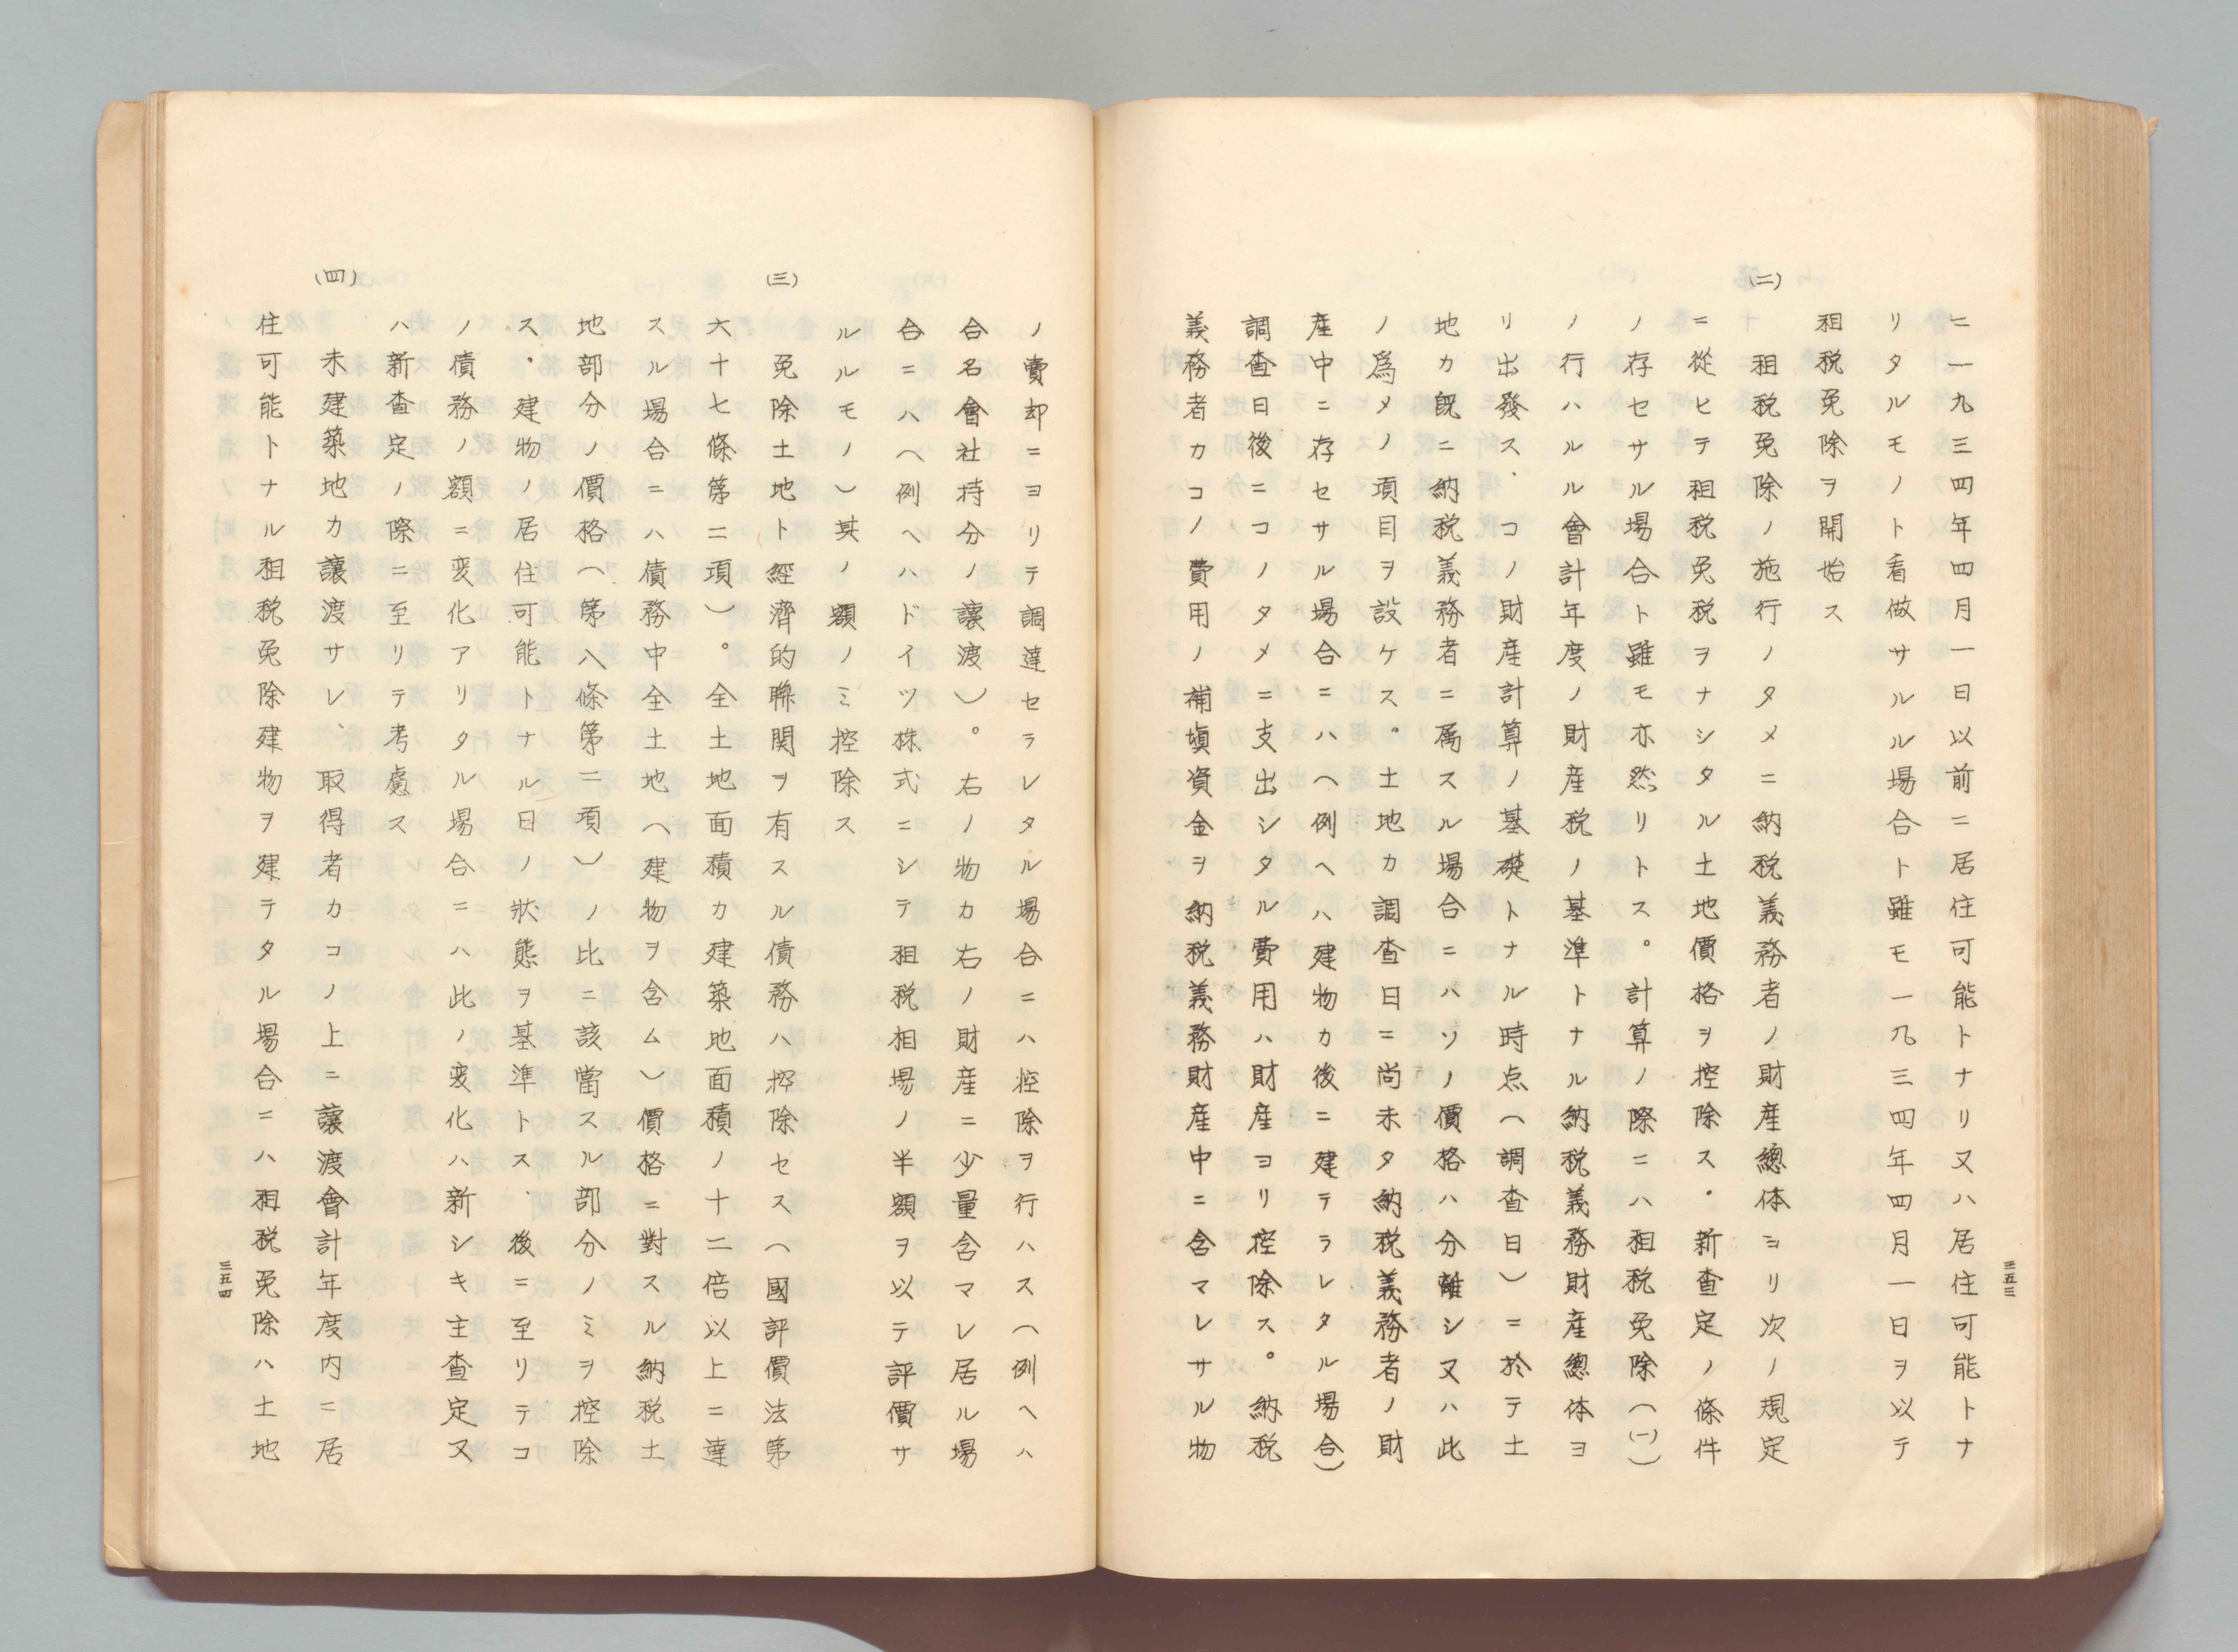 ニ一九三四年四月一日以前ニ居住可能トナリ又ハ居住可能トナ
リタルモノト看做サルル場合ト雖モ一九三四年四月一日ヲ以テ
租税免除ヲ開始ス
(二)
租税免除ノ施行ノタメニ納税義務者ノ財産總体ヨリ次ノ規定
ニ從ヒテ租税免税ヲナシタル土地價格ヲ控除ス.新査定ノ條件
ノ存セサル場合ト雖モ亦然リトス。計算ノ際ニハ租税免除(㈠)
ノ行ハルル會計年度ノ財産税ノ基準トナル納税義務財産總体ヨ
リ出發ス.コノ財産計算ノ基礎トナル時点(調査日)ニ於テ土
地カ旣ニ納税義務者ニ属スル場合ニハソノ價格ハ分離シ又ハ此
ノ爲メノ項目ヲ設ケス。土地カ調査日ニ尚未タ納税義務者ノ財
産中ニ存セサル場合ニハ(例ヘハ建物カ後ニ建テラレタル場合)
調査日後ニコノタメニ支出シタル費用ハ財産ヨリ控除ス。納税
義務者カコノ費用ノ補塡資金ヲ納税義務財産中ニ含マレサル物
三五三
ノ賣却ニヨリテ調達セラレタル場合ニハ控除ヲ行ハス(例ヘハ
合名會社持分ノ讓渡)。右ノ物カ右ノ財産ニ少量含マレ居ル場
合ニハ(例ヘハドイツ株式ニシテ租税相場ノ半額ヲ以テ評價サ
ルルモノ)其ノ額ノミ控除ス
(三)
免除土地ト經濟的聯関ヲ有スル債務ハ控除セス(國評價法第
六十七條第二項)。全土地面積カ建築地面積ノ十二倍以上ニ達
スル場合ニハ債務中全土地(建物ヲ含ム)價格ニ對スル納税土
地部分ノ價格(第八條第二項)ノ比ニ該當スル部分ノミヲ控除
ス.建物ノ居住可能トナル日ノ狀態ヲ基準トス.後ニ至リテコ
ノ債務ノ額ニ変化アリタル場合ニハ此ノ変化ハ新シキ主査定又
ハ新査定ノ際ニ至リテ考慮ス
(四)
未建築地カ讓渡サレ、取得者カコノ上ニ讓渡會計年度内ニ居
住可能トナル租税免除建物ヲ建テタル場合ニハ租税免除ハ土地
三五四